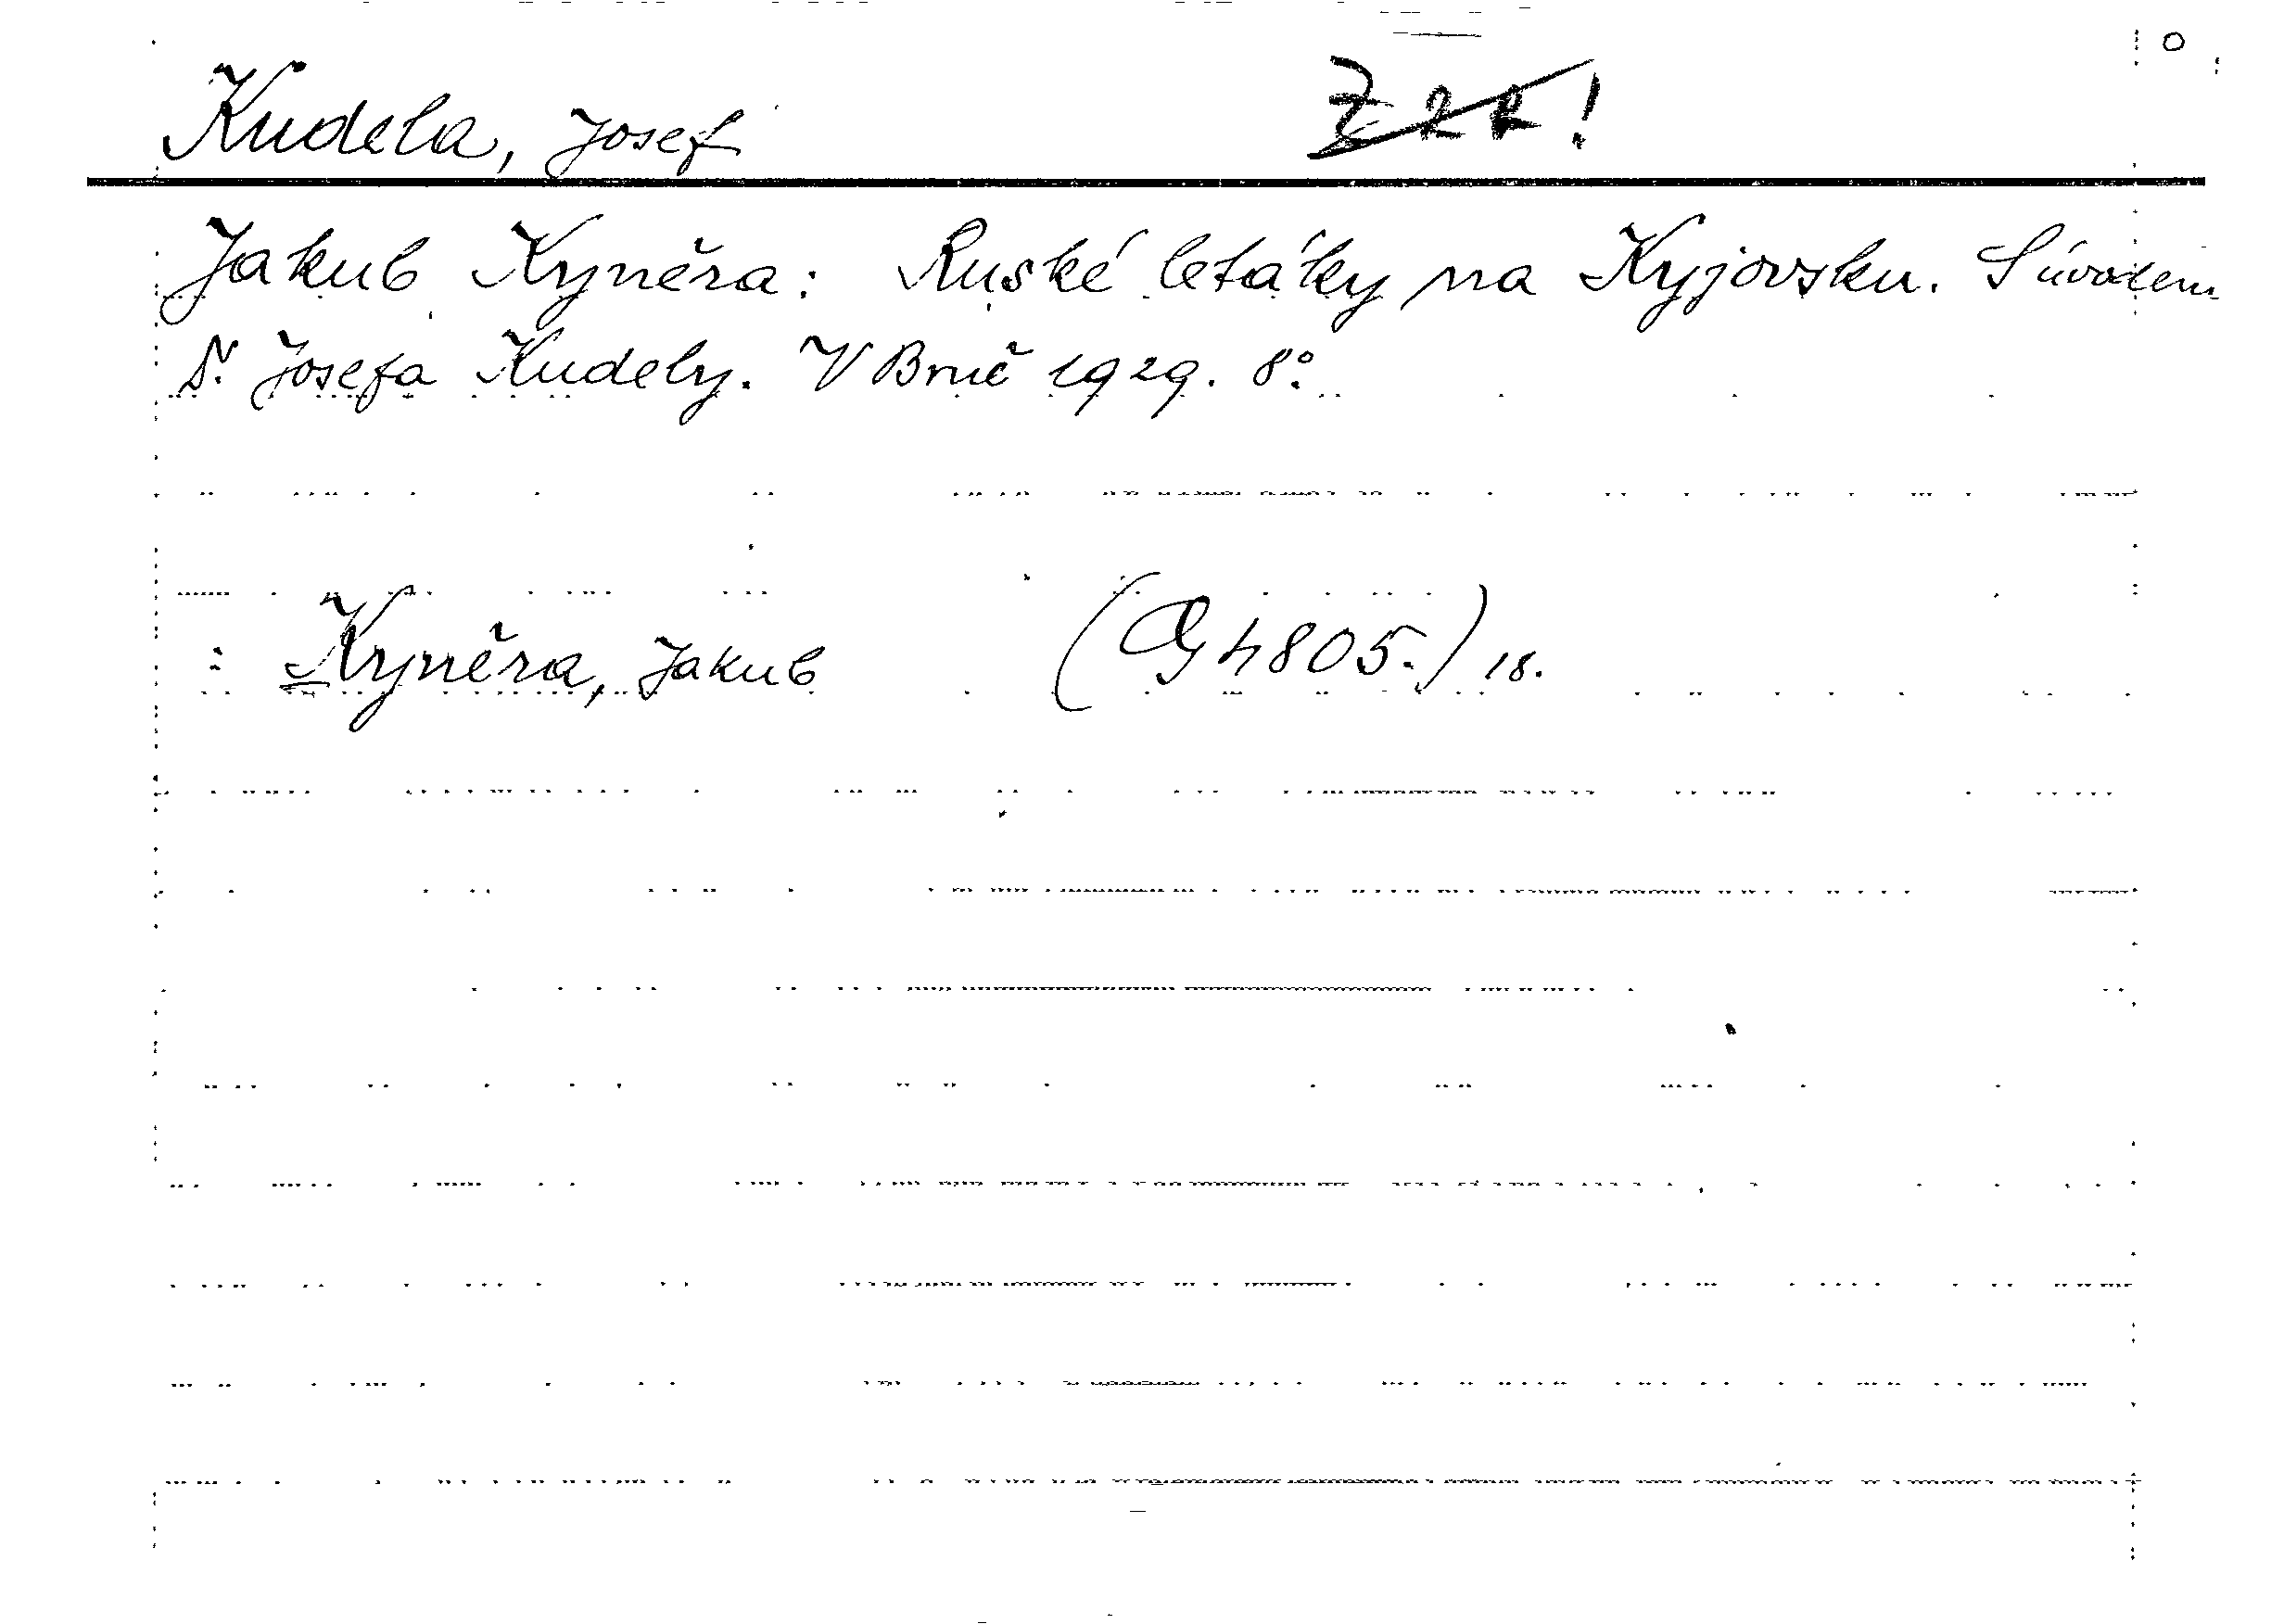 Kudela, Josef
Jakub Kyněra: Ruské letáky na Kyjovsku. S úvodem
Dr. Josefa Kudely. V Brně 1929. 8°.
: Kyněra, Jakub (G 4805.) 18.